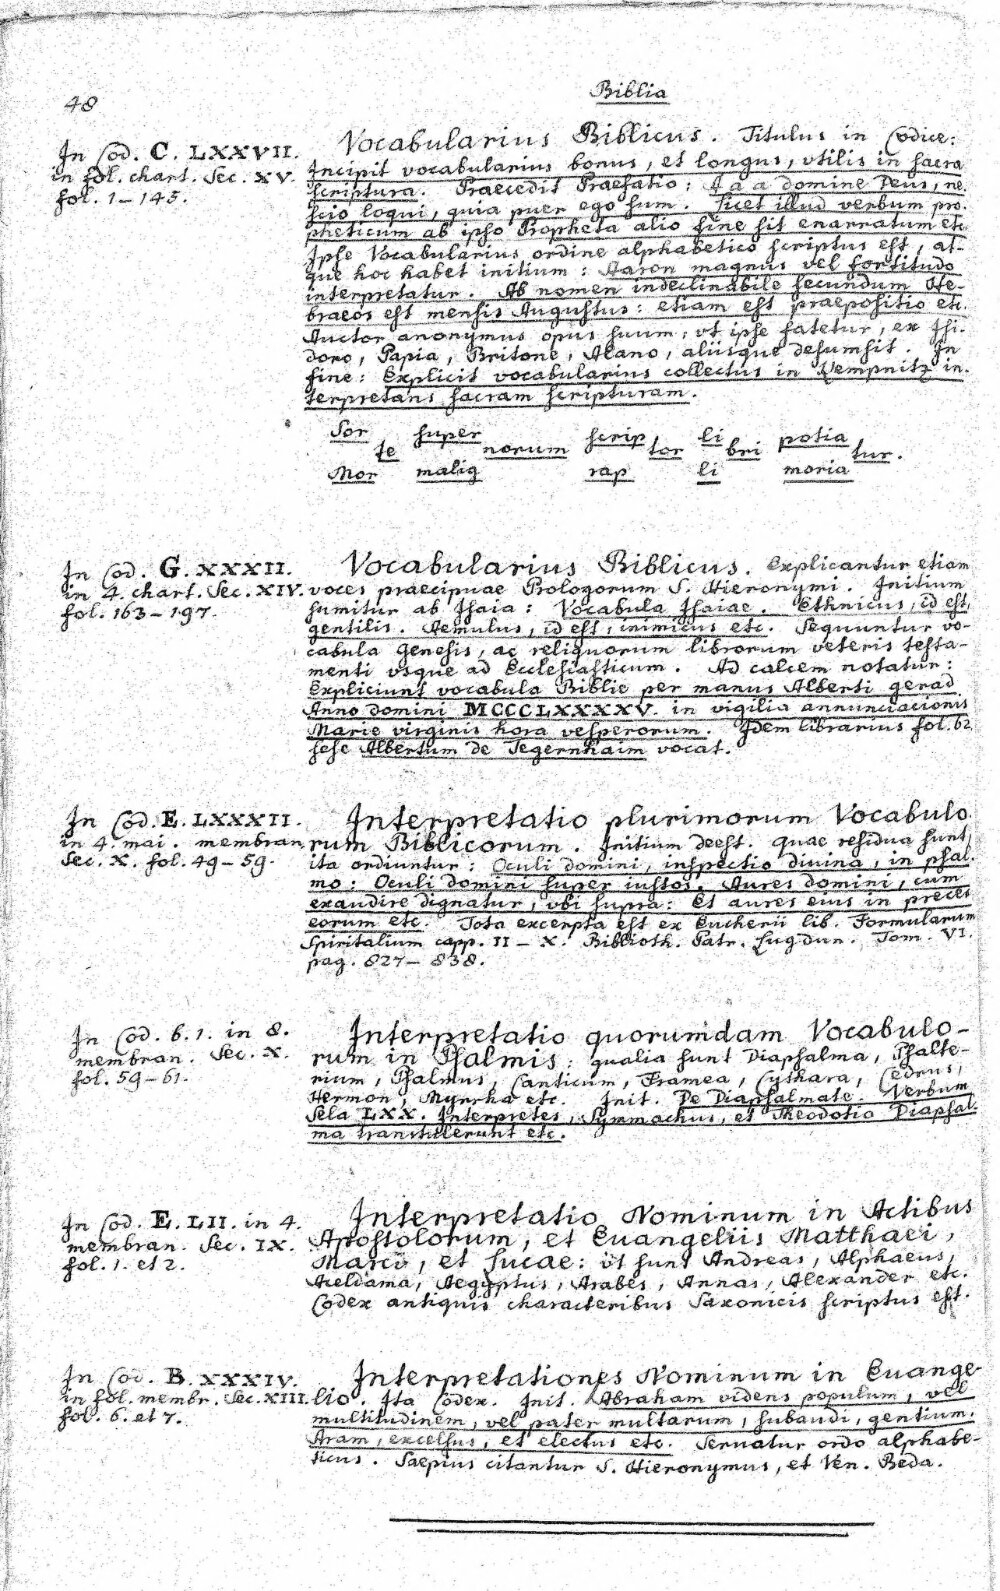 48
Biblia
In Cod. C. LXXVII.
in fol. chart. Sec. XV.
fol. 1–145.
Vocabularius Biblicus. Titulus in Codice:
Incipit vocabularius bonus, et longus, vtilis in sacra
scriptura. Praecedit Praefatio: A a a domine Deus, ne-
scio loqui, quia puer ego sum. Licet illud verbum pro-
pheticum ab ipso Propheta alio fine sit enarratum etc.
Ipse Vocabularius ordine alphabetico scriptus est, at-
que hoc habet initium: Aaron magnus vel fortitudo
interpretatur. Ab nomen indeclinabile secundum He-
braeos est mensis Augustus: etiam est praepositio etc.
Auctor anonymus opus suum, vt ipse fatetur, ex Isi-
doro, Papia, Britone, Alano, aliisque desumsit. In
fine: Explicit vocabularius collectus in Kempnitz in-
terpretans sacram scripturam.
Sor super scrip li potia
te norum tor bri tur.
Mor malig rap li moria
In Cod. G. XXXII.
in 4. chart. Sec. XIV.
fol. 163–197.
Vocabularius Biblicus. Explicantur etiam
voces praecipuae Prologorum S. Hieronymi. Initium
sumitur ab Isaia: Vocabula Isaiae. Ethnicus, id est,
gentilis. Aemulus, id est, inimicus etc. Sequuntur vo-
cabula Genesis, ac reliquorum librorum veteris testa-
menti vsque ad Ecclesiasticum. Ad calcem notatur:
Expliciunt vocabula Biblie per manus Alberti gerad
Anno domini MCCCLXXXXV. in vigilia annunciacionis
Marie virginis hora vesperorum. Idem librarius fol. 62
sese Albertum de Tegernhaim vocat.
In Cod. E. LXXXII.
in 4. mai. membran.
Sec. X. fol. 49–59.
Interpretatio plurimorum Vocabulo
rum Biblicorum. Initium deest. Quae residua sunt,
ita ordiuntur: Oculi domini, inspectio divina, in psal-
mo: Oculi domini super iustos. Aures domini, cum
exaudire dignatur, vbi supra: Et aures eius in preces
eorum etc. Tota excerpta est ex Eucherii lib. Formularum
Spiritalium capp. II – X. Biblioth. Patr. Lugdun. Tom. VI.
pag. 827– 838.
In Cod. 6. 1. in 8.
membran. Sec. X.
fol. 59–61.
Interpretatio quorumdam Vocabulo-
rum in Psalmis: qualia sunt Diapsalma, Psalte-
rium, Psalmus, Canticum, Framea, Cythara, Cedrus,
Hermon, Myrrha etc. Init. De Diapsalmate. Verbum
Sela LXX. Interpretes, Symmachus, et Theodotio Diapsal-
ma transtulerunt etc.
In Cod. E. LII. in 4.
membran. Sec. IX.
fol. 1. et 2.
Interpretatio Nominum in Actibus
Apostolorum, et Euangeliis Matthaei,
Marci, et Lucae: vt sunt Andreas, Alphaeus,
Aceldama, Aegyptus, Arabes, Annas, Alexander etc.
Codex antiquis characteribus Saxonicis scriptus est.
In Cod. B. XXXIV.
in fol. membr. Sec. XIII.
fol. 6. et 7.
Interpretationes Nominum in Euange-
lio. Ita Codex. Init. Abraham videns populum, vel
multitudinem, vel pater multarum, subaudi, gentium.
Aram, excelsus, et electus etc. Seruatur ordo alphabe-
ticus. Saepius citantur S. Hieronymus, et Ven. Beda.